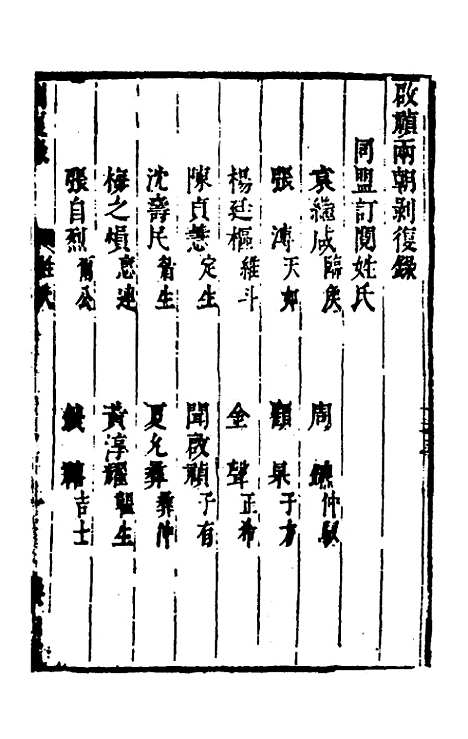 啟禎兩朝剝復錄
同盟訂閱姓氏
袁繼咸臨侯 周鑣仲馭
張溥天如 顧杲子方
楊廷樞維斗 金聲正希
陳貞慧定生 聞啟禎子有
沈壽民眉生 夏允彝彝仲
梅之熉惠連 黃淳耀蘊生
張自烈爾公 吉士
姓氏